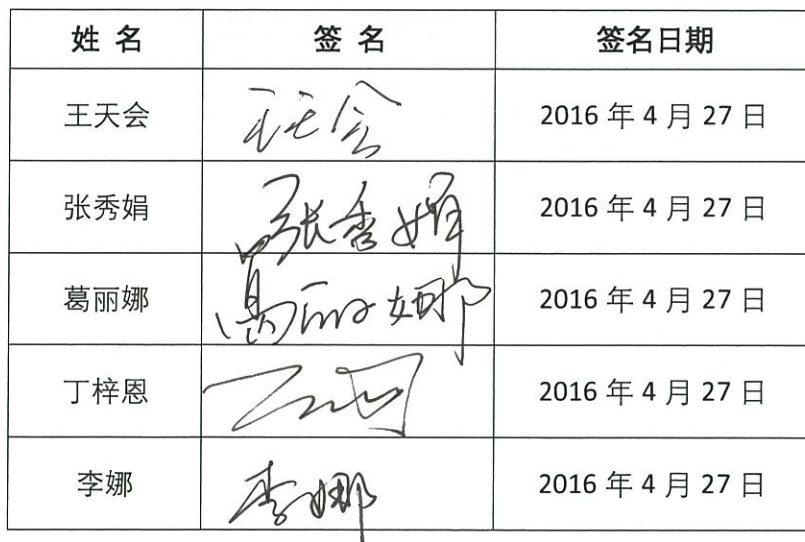 姓 名 签 名 签名日期
王天会 王天会 2016 年 4 月 27 日
张秀娟 张秀娟 2016 年 4 月 27 日
葛丽娜 葛丽娜 2016 年 4 月 27 日
丁梓恩 2016 年 4 月 27 日
李娜 李娜 2016 年 4 月 27 日